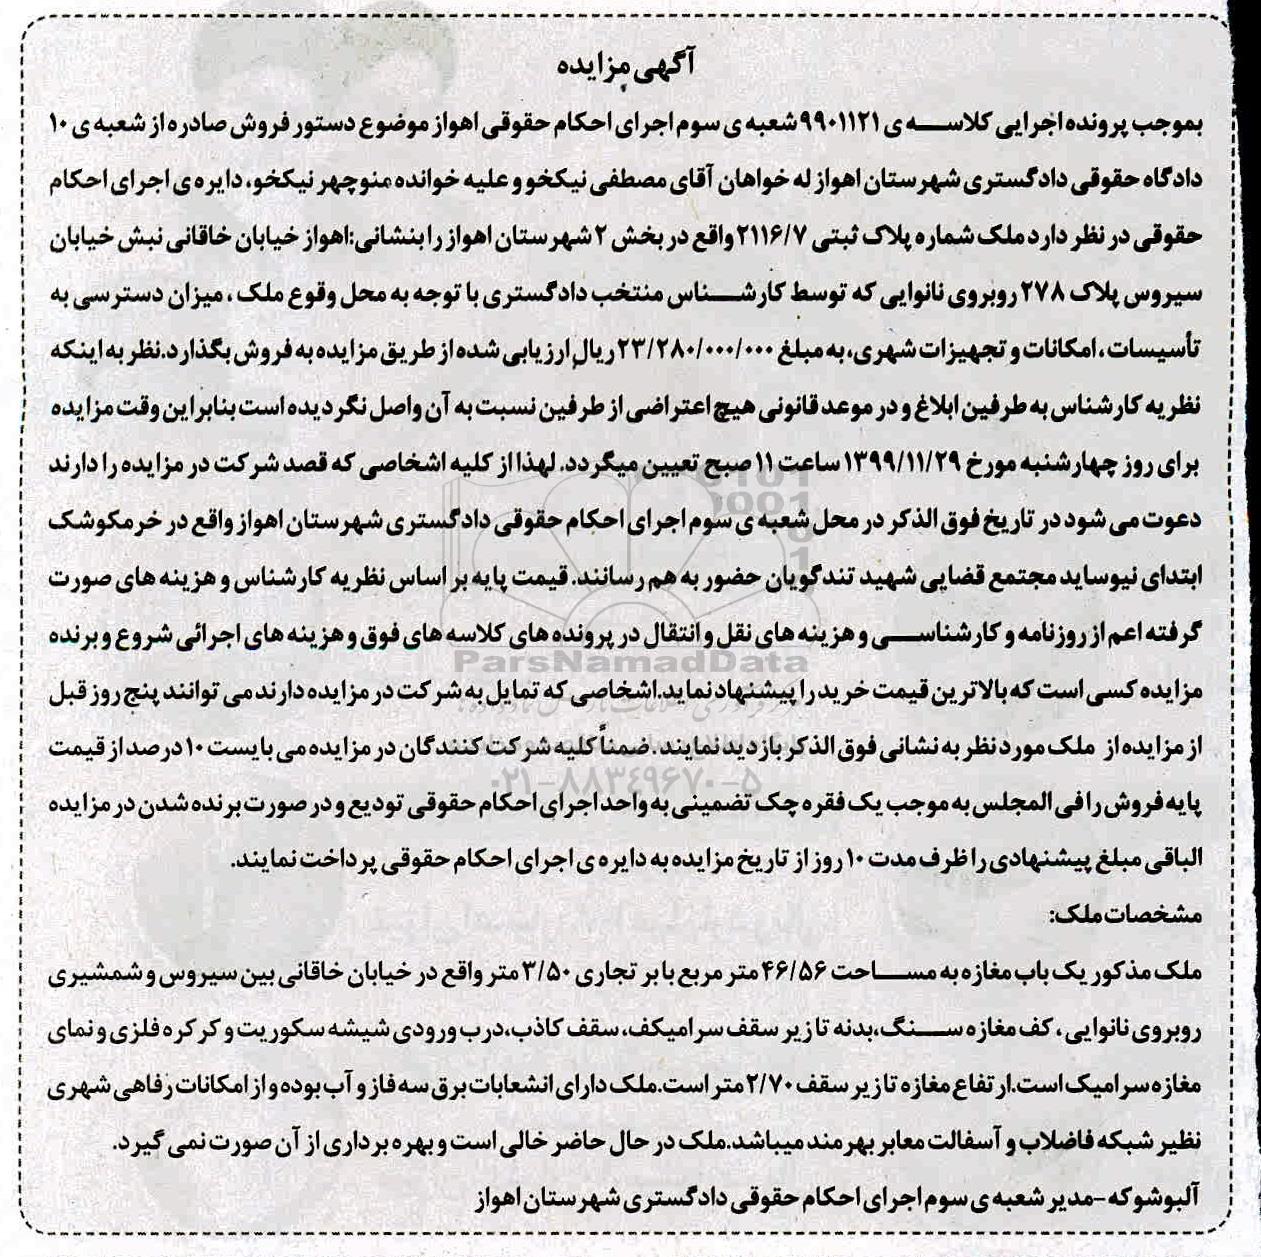 آگهی مزایده
بموجب پرونده اجرایی کلاسه ی ۹۹۰۱۱۲۱ شعبه ی سوم اجرای احکام حقوقی اهواز موضوع دستور فروش صادره از شعبه ی ۱۰
دادگاه حقوقی دادگستری شهرستان اهواز له خواهان آقای مصطفی نیکخو و علیه خوانده منوچهر نیکخو، دایره ی اجرای احکام
حقوقی در نظر دارد ملک شماره پلاک ثبتی ۲۱۱۶/۷ واقع در بخش ۲ شهرستان اهواز را بنشانی:اهواز خیابان خاقانی نبش خیابان
سیروس پلاک ۲۷۸ روبروی نانوایی که توسط کارشناس منتخب دادگستری با توجه به محل وقوع ملک، میزان دسترسی به
تأسیسات، امکانات و تجهیزات شهری، به مبلغ ۲۳/۲۸۰/۰۰۰/۰۰۰ ریال ارزیابی شده از طریق مزایده به فروش بگذارد.نظر به اینکه
نظریه کارشناس به طرفین ابلاغ و در موعد قانونی هیچ اعتراضی از طرفین نسبت به آن واصل نگردیده است بنابراین وقت مزایده
برای روز چهارشنبه مورخ ۱۳۹۹/۱۱/۲۹ ساعت ۱۱ صبح تعیین میگردد. لهذا از کلیه اشخاصی که قصد شرکت در مزایده را دارند
دعوت می شود در تاریخ فوق الذکر در محل شعبه ی سوم اجرای احکام حقوقی دادگستری شهرستان اهواز واقع در خرمکوشک
ابتدای نیوساید مجتمع قضایی شهید تندگویان حضور به هم رسانند. قیمت پایه بر اساس نظریه کارشناس و هزینه های صورت
گرفته اعم از روزنامه و کارشناسی و هزینه های نقل و انتقال در پرونده های کلاسه های فوق و هزینه های اجرائی شروع و برنده
مزایده کسی است که بالاترین قیمت خرید را پیشنهاد نماید.اشخاصی که تمایل به شرکت در مزایده دارند می توانند پنج روز قبل
از مزایده از ملک مورد نظر به نشانی فوق الذکر بازدید نمایند. ضمناً کلیه شرکت کنندگان در مزایده می بایست ۱۰ درصد از قیمت
پایه فروش را فی المجلس به موجب یک فقره چک تضمینی به واحد اجرای احکام حقوقی تودیع و در صورت برنده شدن در مزایده
الباقی مبلغ پیشنهادی را ظرف مدت ۱۰ روز از تاریخ مزایده به دایره ی اجرای احکام حقوقی پرداخت نمایند.
مشخصات ملک:
ملک مذکور یک باب مغازه به مساحت ۴۶/۵۶ متر مربع با بر تجاری ۳/۵۰ متر واقع در خیابان خاقانی بین سیروس و شمشیری
روبروی نانوایی، کف مغازه سنگ،بدنه تا زیر سقف سرامیکف، سقف کاذب،درب ورودی شیشه سکوریت و کرکره فلزی و نمای
مغازه سرامیک است.ارتفاع مغازه تا زیر سقف ۲/۷۰ متر است.ملک دارای انشعابات برق سه فاز و آب بوده و از امکانات رفاهی شهری
نظیر شبکه فاضلاب و آسفالت معابر بهرمند میباشد.ملک در حال حاضر خالی است و بهره برداری از آن صورت نمی گیرد.
آلبوشوکه -مدیر شعبه ی سوم اجرای احکام حقوقی دادگستری شهرستان اهواز
ParsNamadData
۰۲۱-۸۸۳۴۹۶۷۰-۵